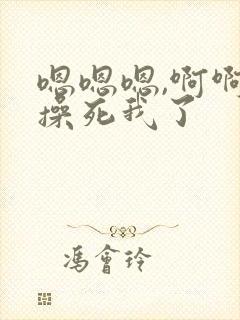 嗯嗯嗯,啊啊
操死我了
冯會玲